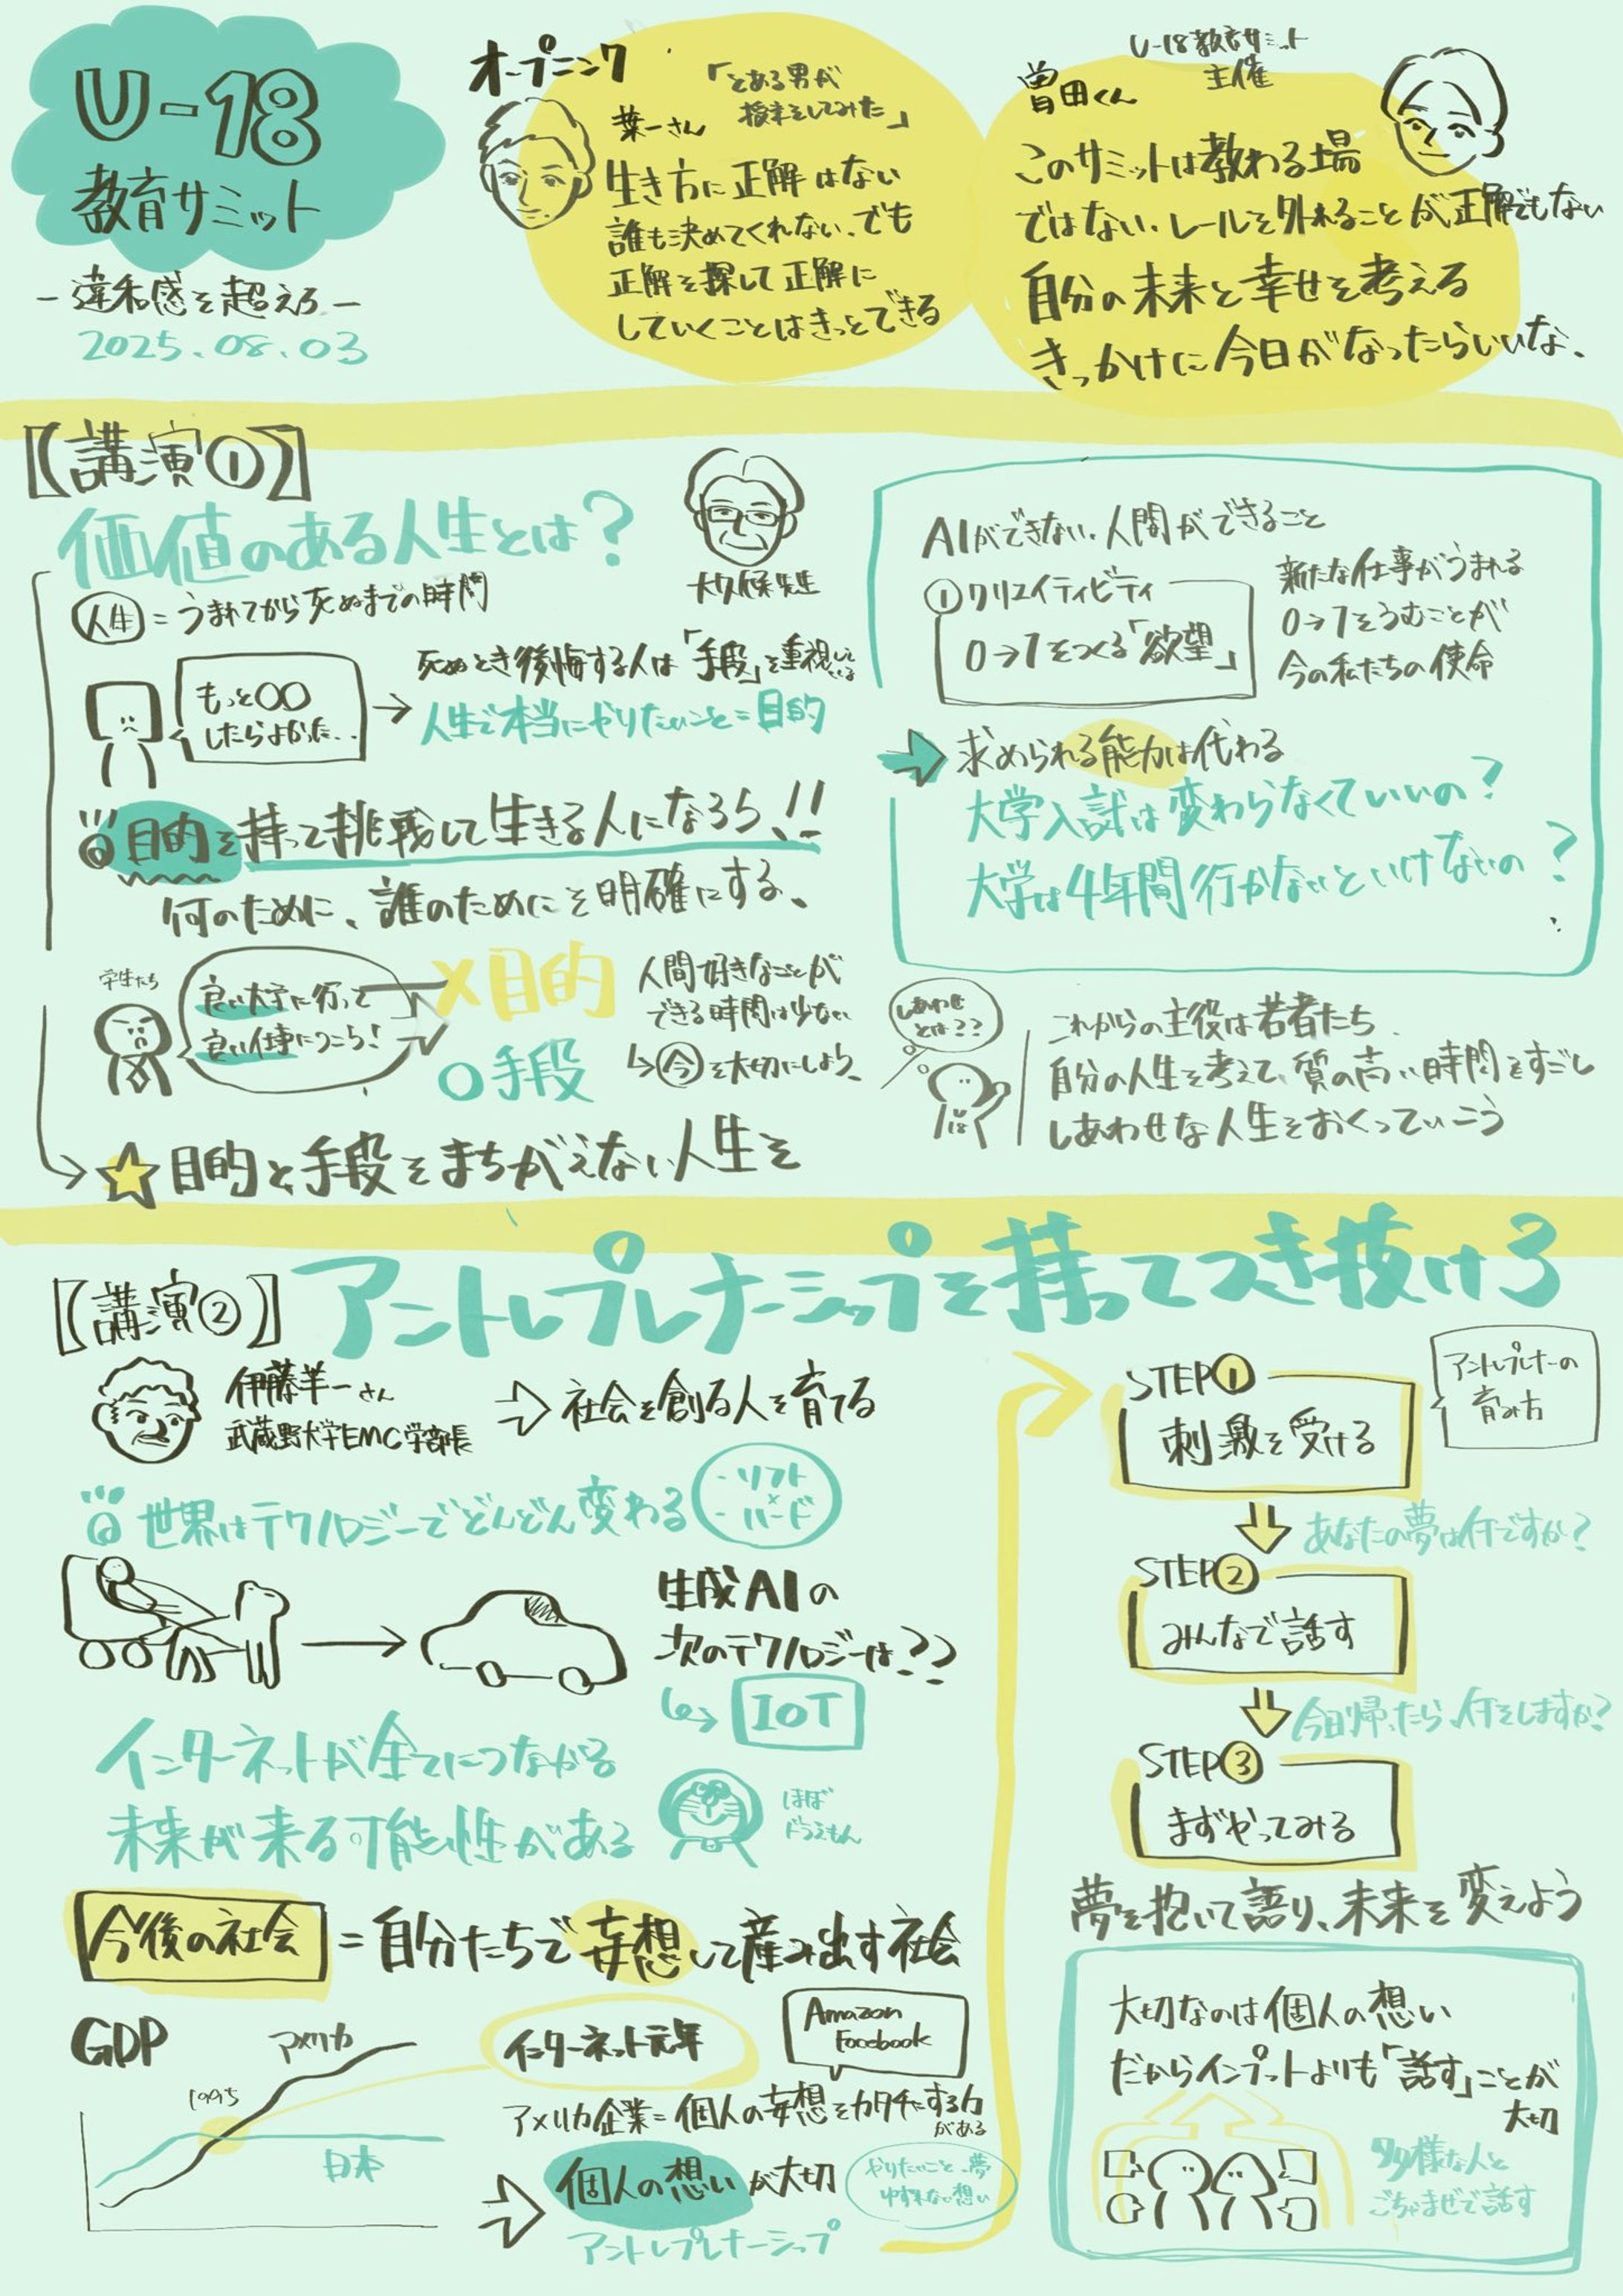 U-18
教育サミット
- 違和感を超えろ -
2025.08.03
オープニング
葉一さん
「とある男が
授業をしてみた」
生き方に正解はない
誰も決めてくれない、でも
正解を探して正解に
していくことはきっとできる
U-18教育サミット
主催
曽田くん
このサミットは教わる場
ではない、レールを外れることが正解でもない
自分の未来と幸せを考える
きっかけに今日がなったらいいな、
【講演①】
価値のある人生とは?
大久保先生
人生=うまれてから死ぬまでの時間
もっと○○
したらよかった..
→ 死ぬとき後悔する人は「手段」を重視している
人生で本当にやりたいこと=目的
目的を持って挑戦して生きる人になろう!!
何のために、誰のためにを明確にする、
学生たち
良い大学に行って
良い仕事につこう!
×目的
○手段
人間好きなことが
できる時間は少ない
↳今を大切にしよう、
→☆目的と手段をまちがえない人生を
AIができない、人間ができること
①クリエイティビティ
0→1をつくる「欲望」
新たな仕事がうまれる
0→1をうむことが
今の私たちの使命
→求められる能力は代わる
大学入試は変わらなくていいの?
大学は4年間行かないといけないの?
しあわせ
とは??
18
これからの主役は若者たち、
自分の人生を考えて、質の高い時間をすごし
しあわせな人生をおくっていこう
【講演②】
アントレプレナーシップを持ってつき抜けろ
伊藤羊一さん
武蔵野大学EMC学部長
⇒社会を創る人を育てる
世界はテクノロジーでどんどん変わる
・ソフト
×
・ハード
→
生成AIの
次のテクノロジーは??
↳ IoT
インターネットが全てにつながる
未来が来る可能性がある
ほぼ
ドラえもん
今後の社会=自分たちで妄想して産み出す社会
GDP
アメリカ
1995
日本
インターネット元年
Amazon
Facebook
アメリカ企業=個人の妄想をカタチにする力
がある
⇒個人の想いが大切
やりたいこと、夢
ゆずれない想い
アントレプレナーシップ
アントレプレナーの
育み方
STEP①
刺激を受ける
あなたの夢は何ですか?
STEP②
みんなで話す
今日帰ったら、何をしますか?
STEP③
まずやってみる
夢を抱いて語り、未来を変えよう
大切なのは個人の想い
だからインプットよりも「話す」ことが
大切
多様な人と
ごちゃまぜで話す